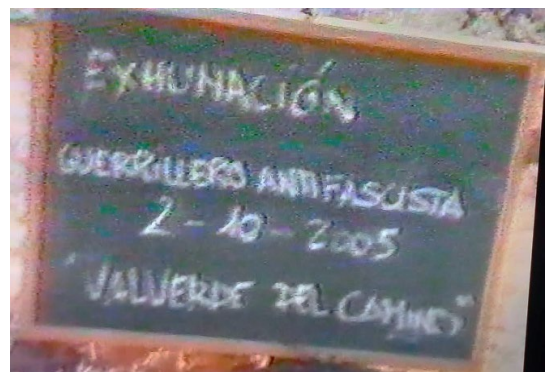 EXHUMACIÓN
GUERRILLERO ANTIFASCISTA
2-10-2005
"VALVERDE DEL CAMINO"